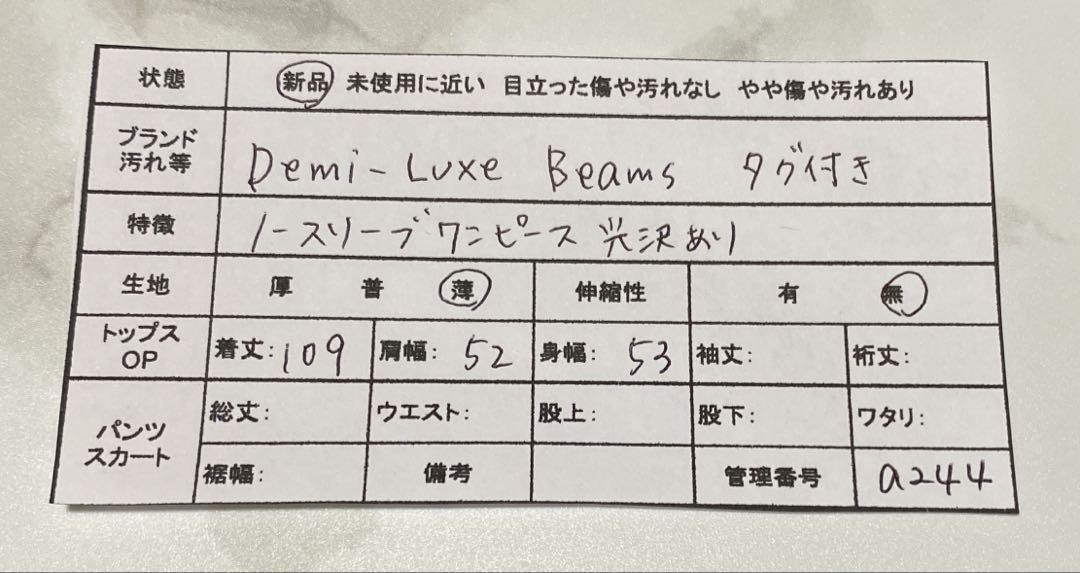 状態 新品 未使用に近い 目立った傷や汚れなし やや傷や汚れあり
ブランド
汚れ等 Demi-Luxe Beams タグ付き
特徴 ノースリーブワンピース 光沢あり
生地 厚 普 薄 伸縮性 有 無
トップス
OP 着丈:109 肩幅:52 身幅:53 袖丈: 裄丈:
パンツ
スカート 総丈: ウエスト: 股上: 股下: ワタリ:
裾幅: 備考 管理番号 a244